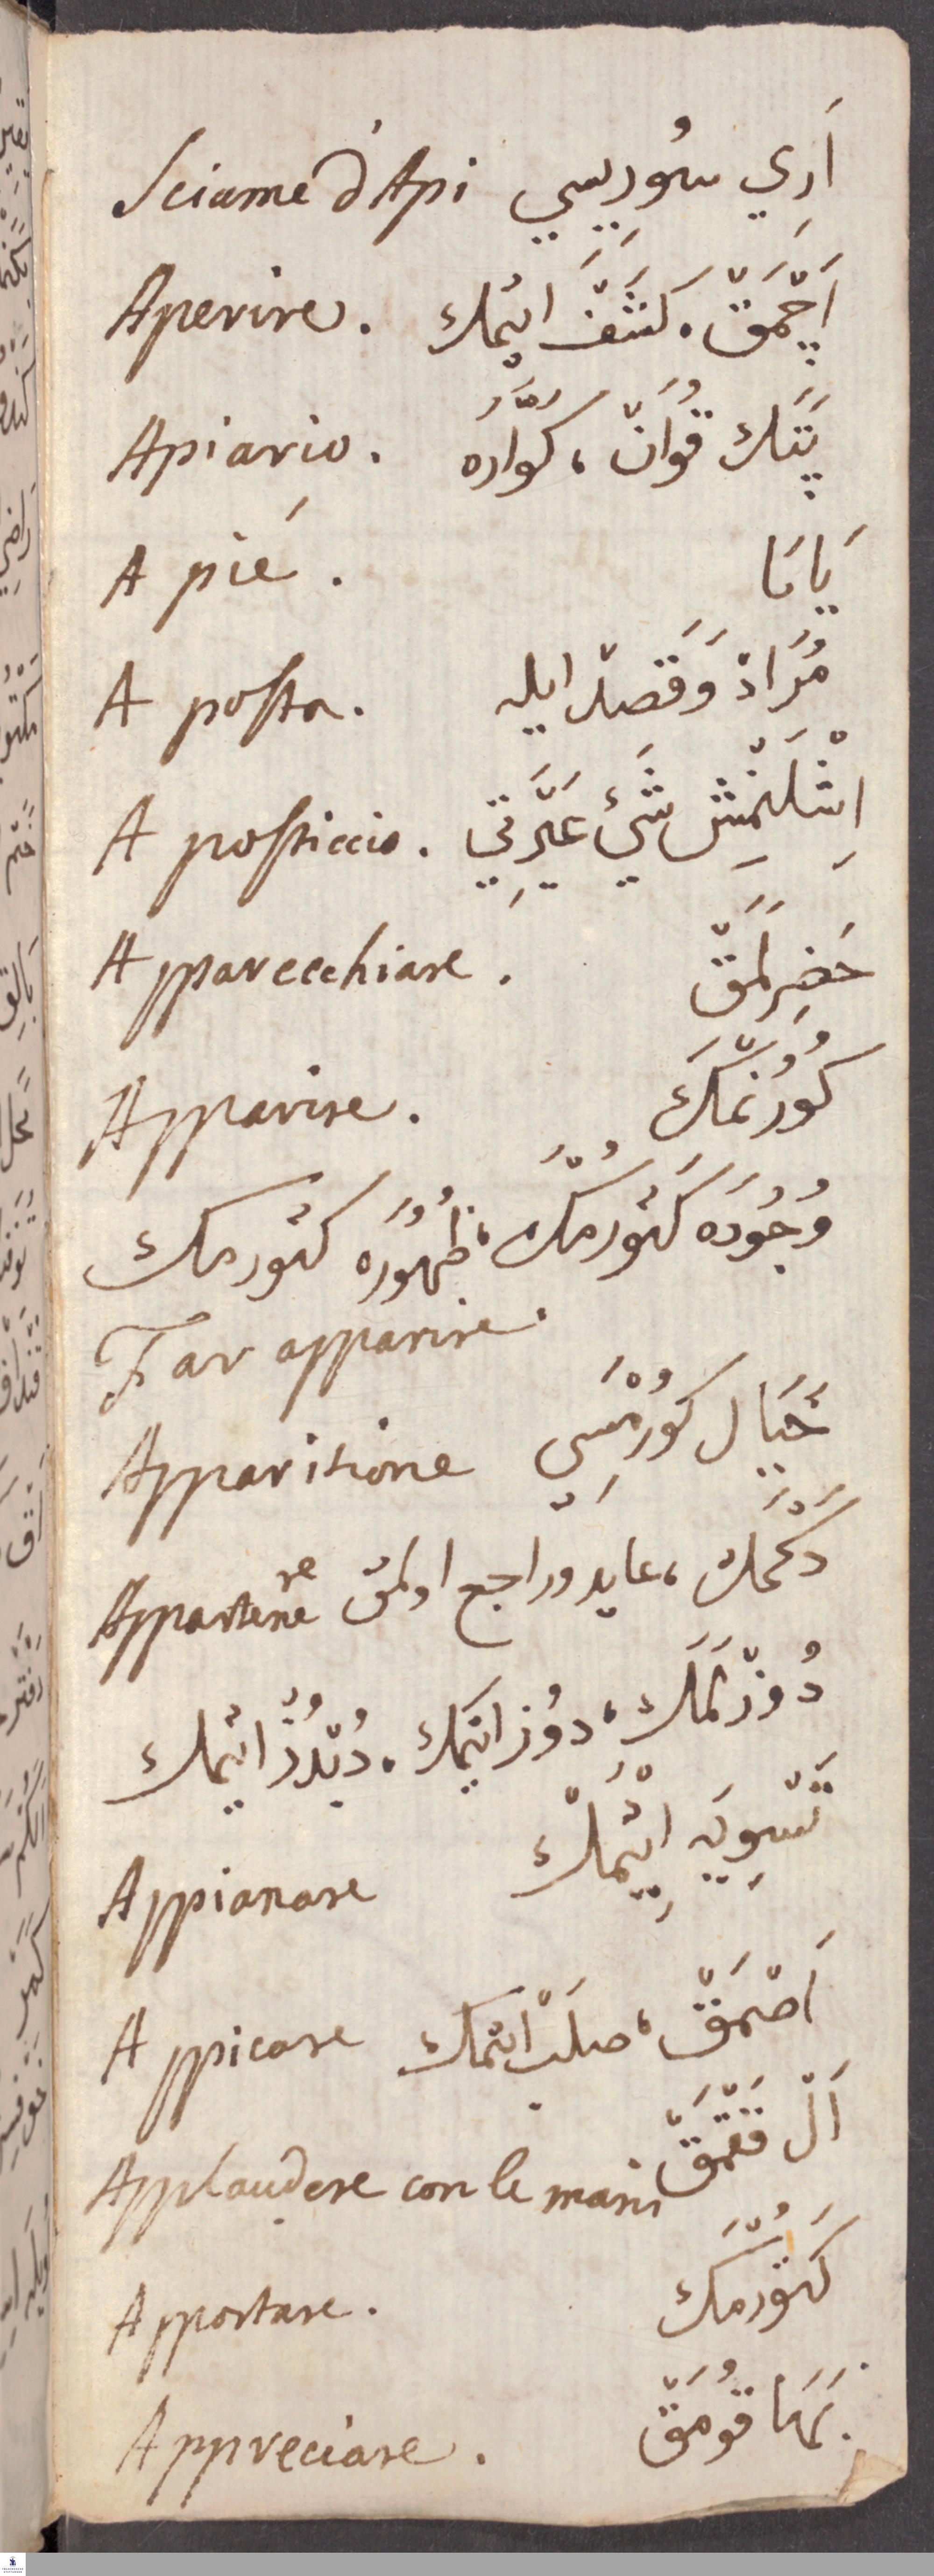 Sciame d'Api اَرِي سُورِيسِي
Aperire. اَچْمَقْ، كَشَفْ ايتمك
Apiario. پَتَك قُوَانْ، كُوَّارَه
A pié. يَايَا
A posta. مُرَادْ وَقَصدْ ايله
A posticcio. اِشْلَنْمِش شَيْئ غَيْرَتِي
Apparecchiare. حَضِرلَمَقْ
Apparire. كُورُنْمَكَ
وُجُودَه كَتُورْمُكْ، ظُهُورَه كتورمك
Far apparire.
Apparitione خَيَال كُورُنْمَسِي
Appartenere دَكْمَكْ، عايد وراجع اولمق
دُوزْلَمَك، دوُز ايتمك، دُبْدُزْ ايتمك
Appianare تَسْوِيَه اِيتْمَكْ
Appicare اَصْمَقْ، صَلبْ ايتمك
Applaudere con le mani اَلْ قَقْمَقْ
Apportare. كَتورْمَك
Appreciare. بَهَا قُومَقْ